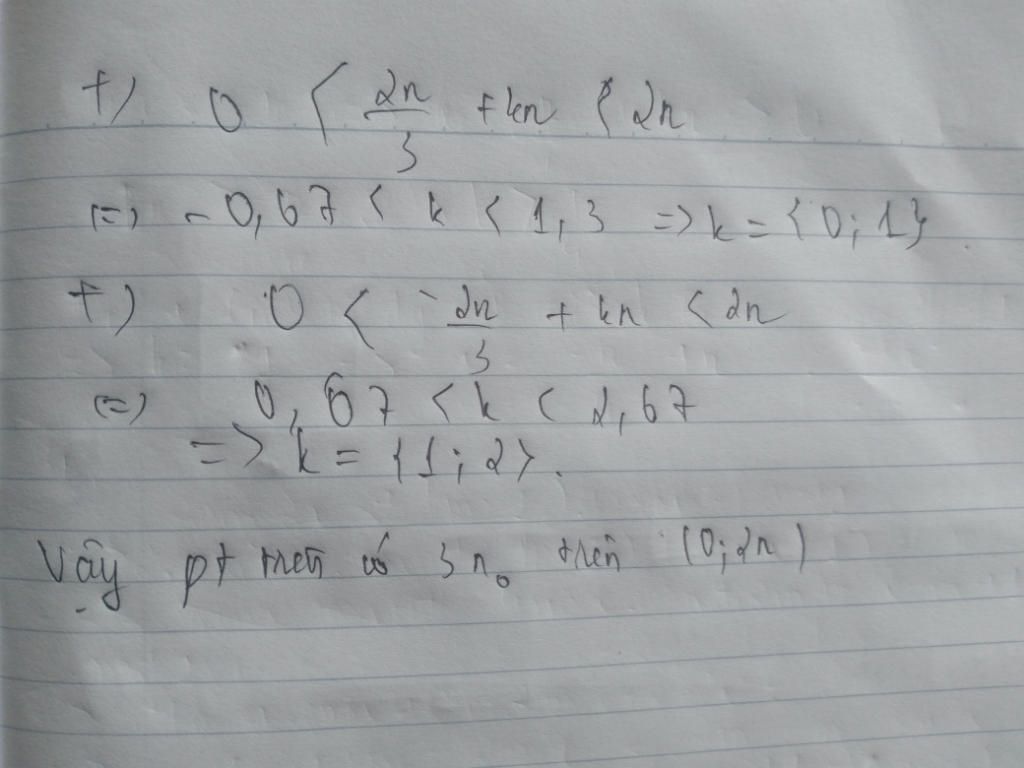 +) 0 < 2π/3 + kπ < 2π
(=) -0,67 < k < 1,3 => k = {0; 1}.
+) 0 < -2π/3 + kπ < 2π
(=) 0,67 < k < 2,67
=> k = {1; 2}.
Vậy pt trên có 3 n₀ trên (0; 2π)